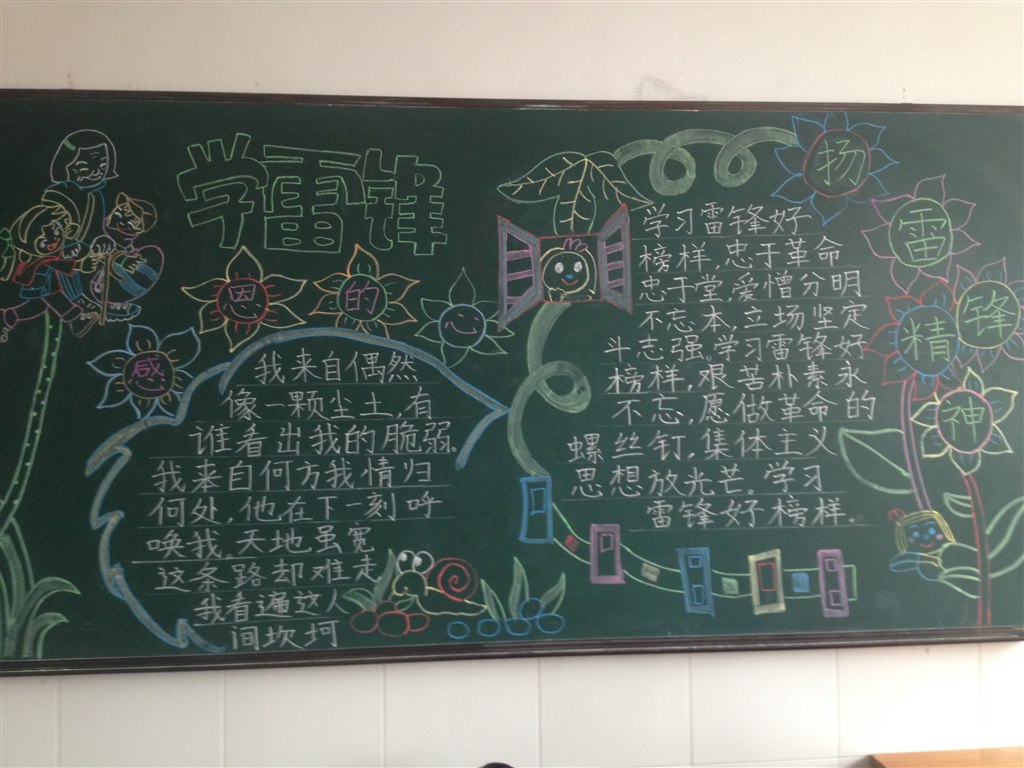 学雷锋
感恩的
我来自偶然
像一颗尘土,有
谁看出我的脆弱。
我来自何方我情归
何处,他在下一刻呼
唤我,天地虽宽
这条路却难走
我看遍这人
间坎坷
学习雷锋好
榜样,忠于革命
忠于堂,爱憎分明
不忘本,立场坚定
斗志强。学习雷锋好
榜样,艰苦朴素永
不忘,愿做革命的
螺丝钉,集体主义
思想放光芒。学习
雷锋好榜样.
扬
雷
锋
精
神